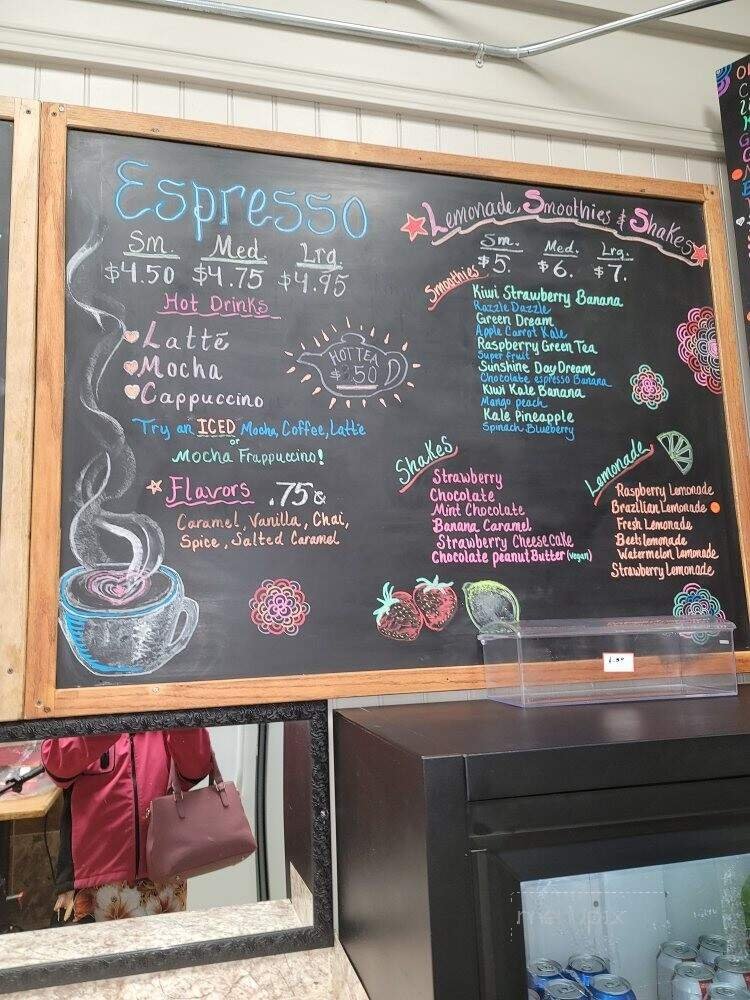 Espresso
Sm. Med. Lrg.
$4.50 $4.75 $4.95
Hot Drinks
Latté
Mocha
Cappuccino
HOT TEA
$2.50
Try an ICED Mocha, Coffee, Latte
or
Mocha Frappuccino!
Flavors .75¢
Caramel, Vanilla, Chai,
Spice, Salted Caramel
Lemonade, Smoothies & Shakes
Sm. Med. Lrg.
$5. $6. $7.
Smoothies
Kiwi Strawberry Banana
Razzle Dazzle
Green Dream
Apple Carrot Kale
Raspberry Green Tea
Super fruit
Sunshine Day Dream
Chocolate espresso Banana
Kiwi Kale Banana
Mango peach
Kale Pineapple
Spinach Blueberry
Shakes
Strawberry
Chocolate
Mint Chocolate
Banana Caramel
Strawberry Cheesecake
Chocolate peanut Butter (vegan)
Lemonade
Raspberry Lemonade
Brazilian Lemonade
Fresh Lemonade
Beets lemonade
Watermelon Lemonade
Strawberry Lemonade